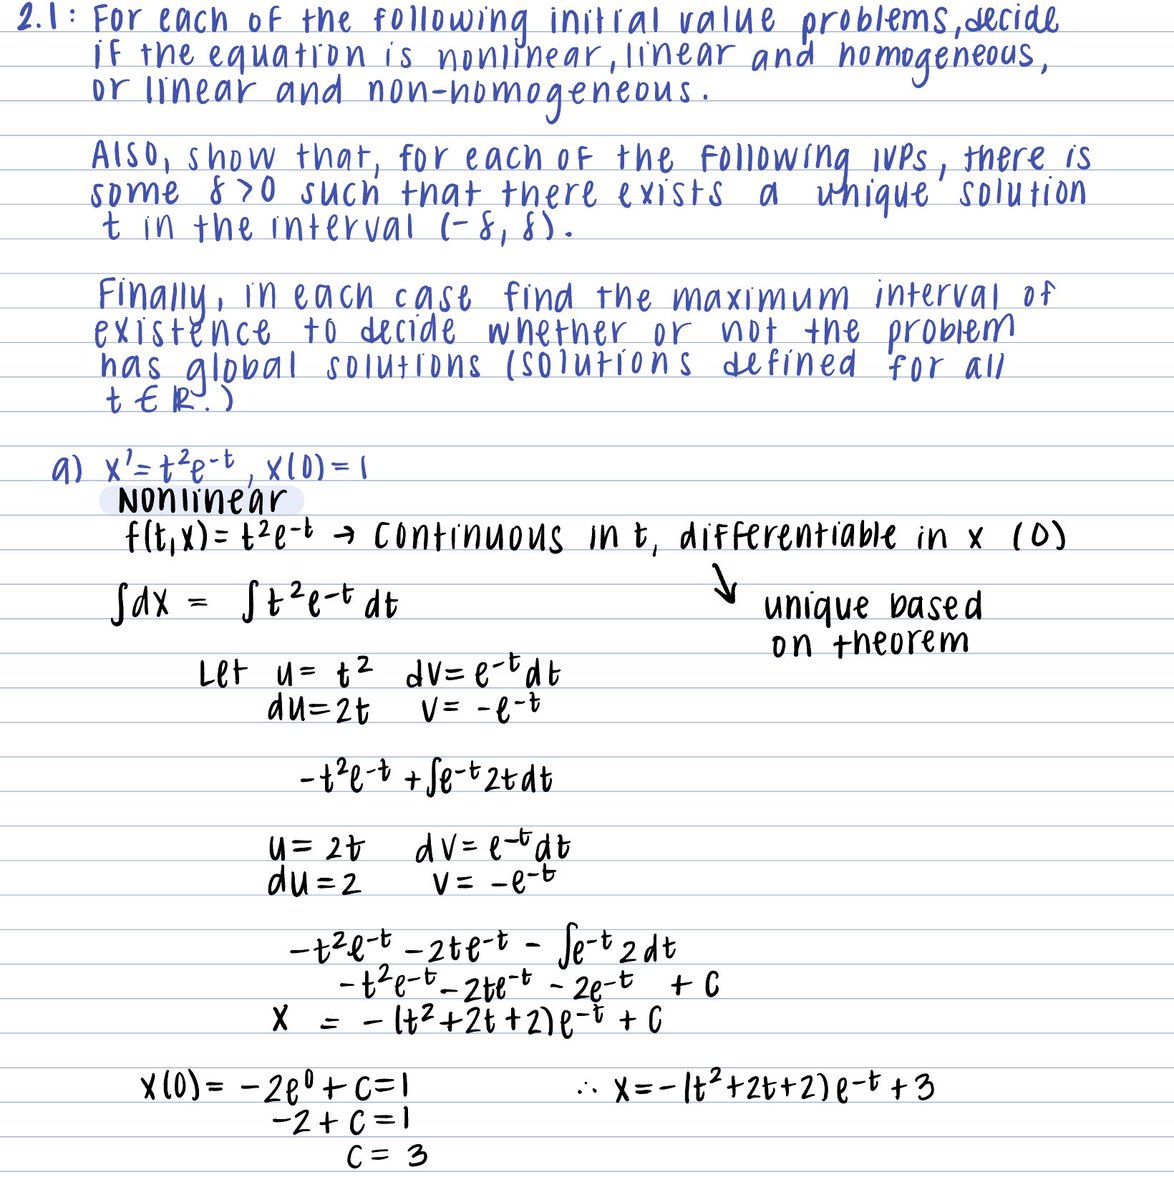 2.1: For each of the following initial value problems, decide
if the equation is nonlinear, linear and homogeneous,
or linear and non-homogeneous.
Also, show that, for each of the following IVPs, there is
some δ>0 such that there exists a unique solution
t in the interval (-δ, δ).
Finally, in each case find the maximum interval of
existence to decide whether or not the problem
has global solutions (solutions defined for all
t ∈ ℝ.)
a) x' = t²e^-t, x(0) = 1
Nonlinear
f(t,x) = t²e^-t → continuous in t, differentiable in x (0)
∫dx = ∫t²e^-t dt
unique based
on theorem
Let u = t² dv = e^-t dt
du = 2t v = -e^-t
-t²e^-t + ∫e^-t 2t dt
u = 2t dv = e^-t dt
du = 2 v = -e^-t
-t²e^-t - 2te^-t - ∫e^-t 2 dt
-t²e^-t - 2te^-t - 2e^-t + C
x = -(t²+2t+2)e^-t + C
x(0) = -2e⁰ + C = 1 ∴ x = -(t²+2t+2)e^-t + 3
-2 + C = 1
C = 3